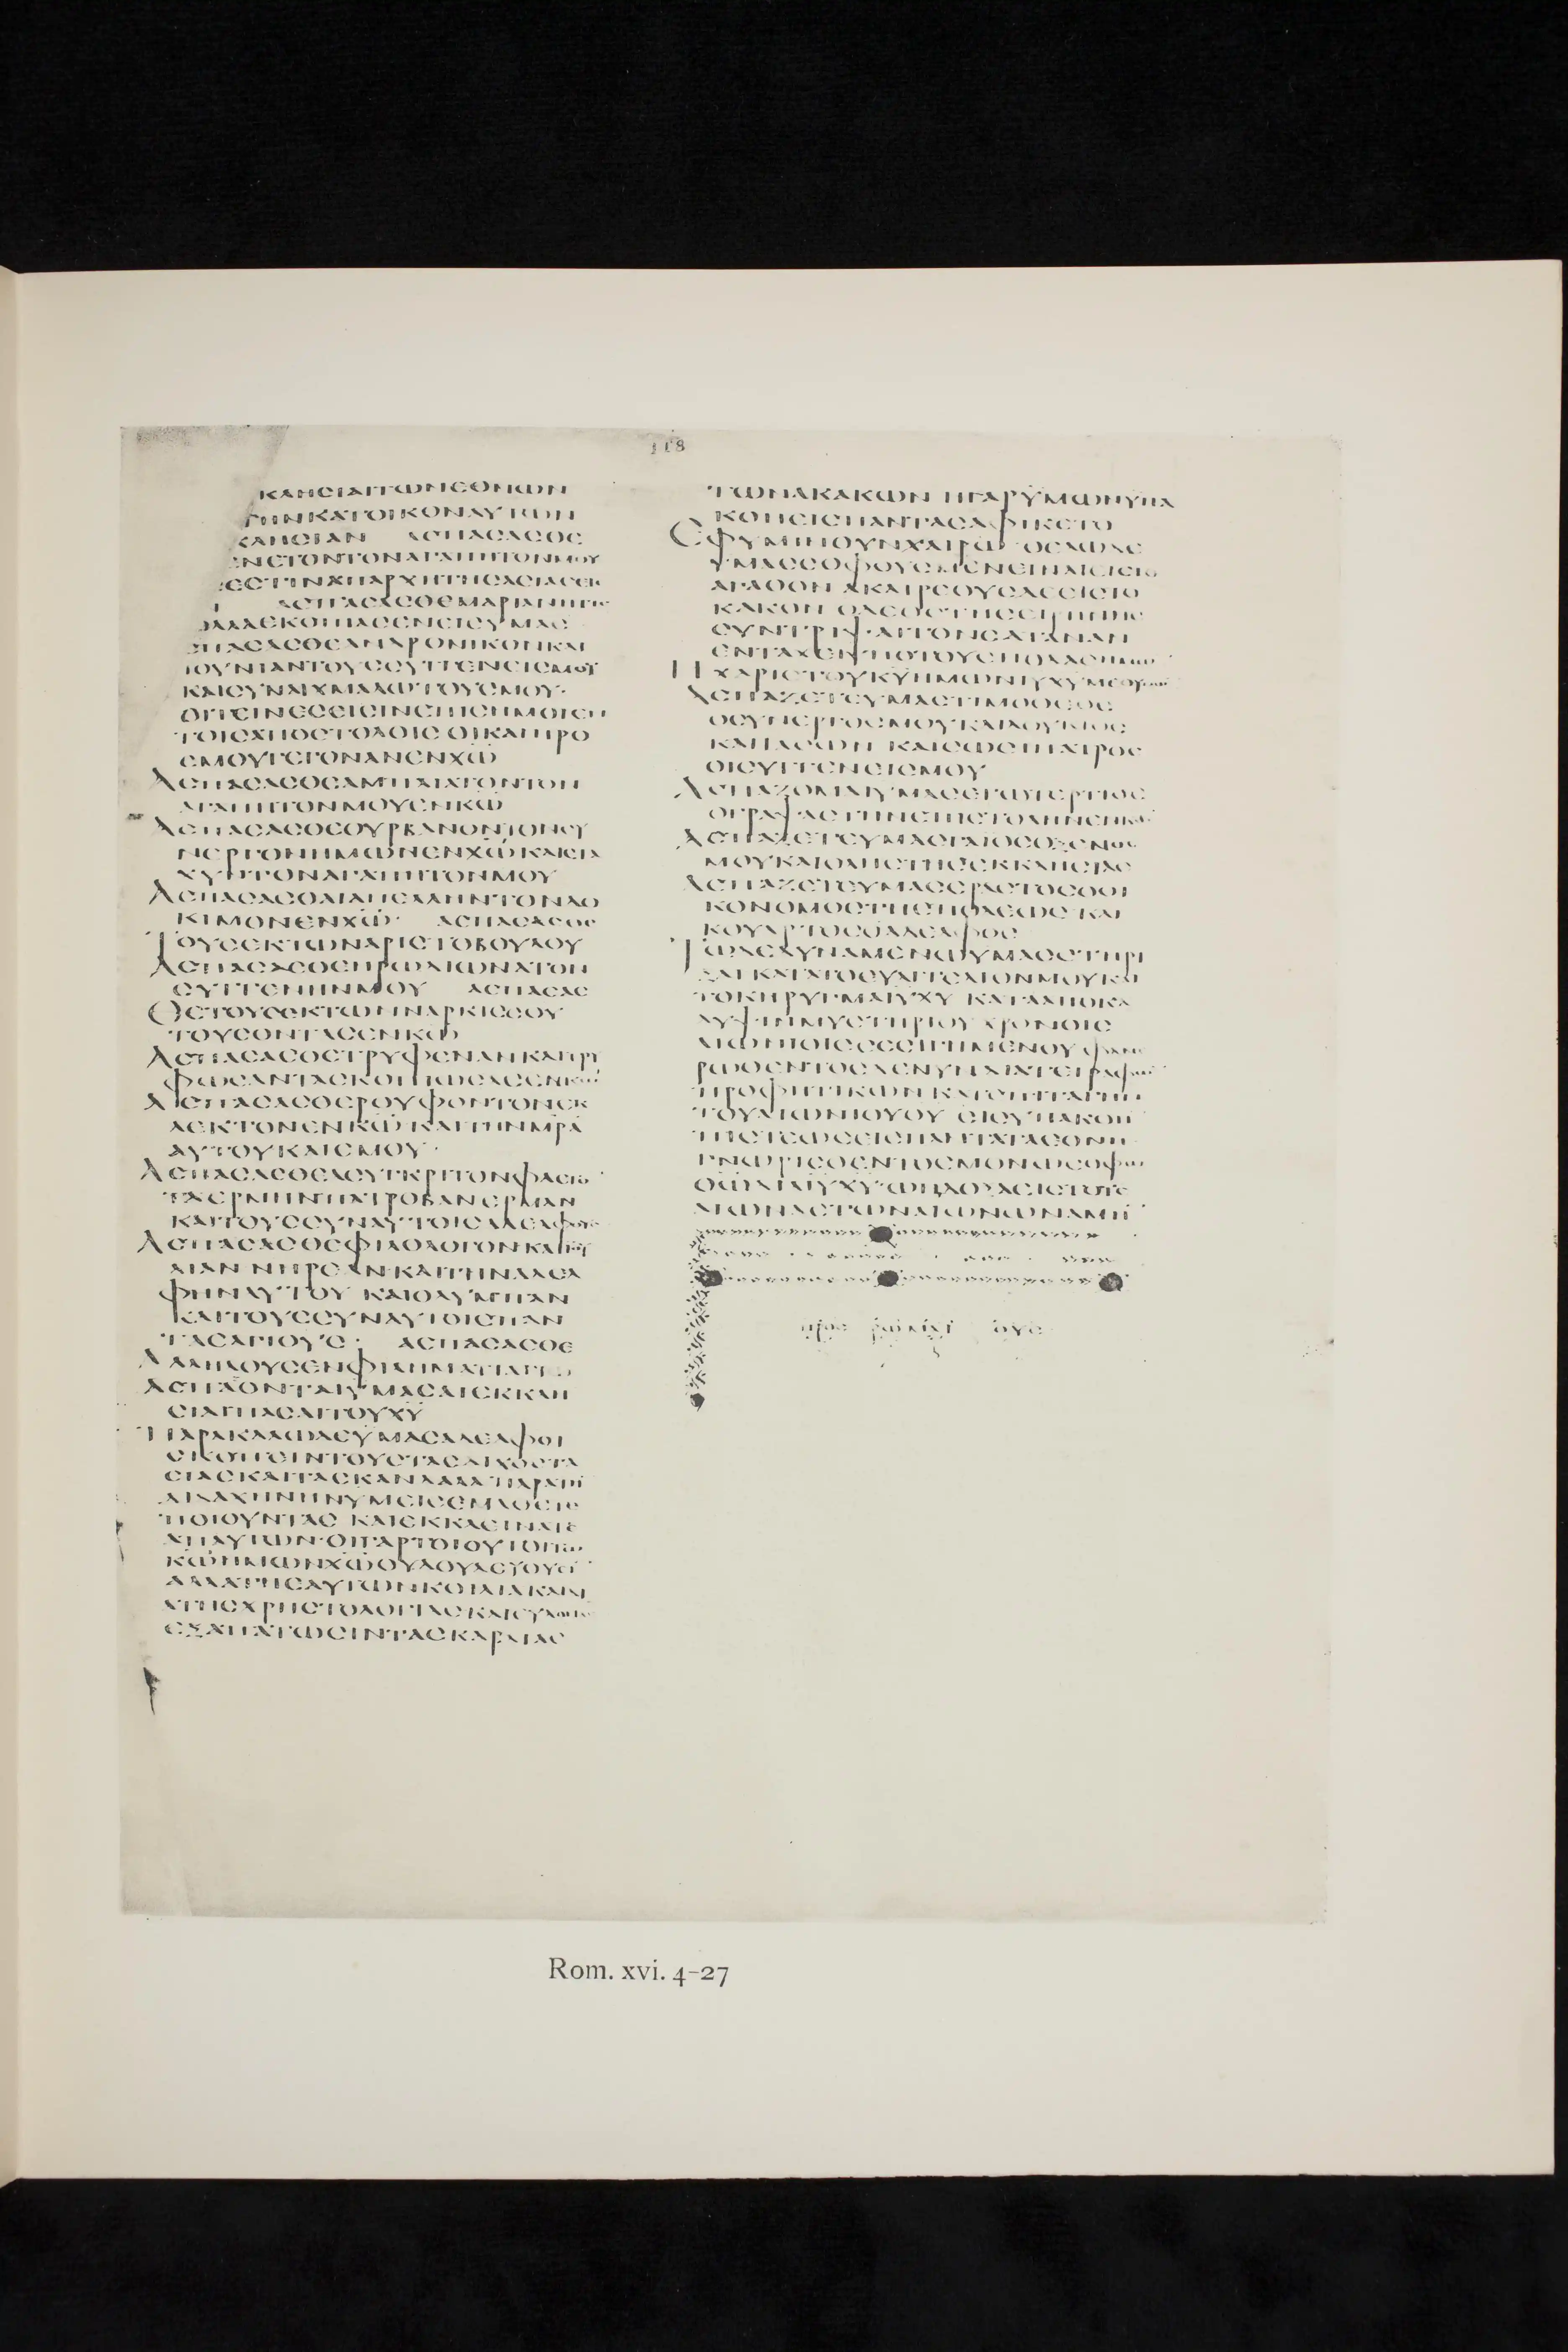 118
ΚΛΗCΙΑΙΤωΝΕΘΝωΝ
ΤΗΝΚΑΤΟΙΚΟΝΑΥΤωΝ
ΚΛΗCΙΑΝ ΑCΠΑCΑCΘΕ
ΝΕΤΟΝΤΟΝΑΓΑΠΗΤΟΝΜΟΥ
ΕCΤΙΝΑΠΑΡΧΗΤΗCΑCΙΑCΕΙC
ΑCΠΑCΑCΘΕΜΑΡΙΑΝΗΤΙC
ΟΛΛΑΕΚΟΠΙΑCΕΝΕΙCΥΜΑC
CΠΑCΑCΘΕΑΝΔΡΟΝΙΚΟΝΚΑΙ
ΙΟΥΝΙΑΝΤΟΥCCΥΓΓΕΝΕΙCΜΟΥ
ΚΑΙCΥΝΑΙΧΜΑΛωΤΟΥCΜΟΥ·
ΟΙΤΕΙΝΕCΕΙCΙΝΕΠΙCΗΜΟΙΕΝ
ΤΟΙCΑΠΟCΤΟΛΟΙC ΟΙΚΑΙΠΡΟ
ΕΜΟΥΓΕΓΟΝΑΝΕΝΧω
ΑCΠΑCΑCΘΕΑΜΠΛΙΑΤΟΝΤΟΝ
ΑΓΑΠΗΤΟΝΜΟΥΕΝΚω
ΑCΠΑCΑCΘΕΟΥΡΒΑΝΟΝΤΟΝCΥ
ΝΕΡΓΟΝΗΜωΝΕΝΧωΚΑΙCΤΑ
ΧΥΝΤΟΝΑΓΑΠΗΤΟΝΜΟΥ
ΑCΠΑCΑCΘΑΙΑΠΕΛΛΗΝΤΟΝΔΟ
ΚΙΜΟΝΕΝΧω· ΑCΠΑCΑCΘΕ
ΤΟΥCΕΚΤωΝΑΡΙCΤΟΒΟΥΛΟΥ
ΑCΠΑCΑCΘΕΗΡωΔΙωΝΑΤΟΝ
CΥΓΓΕΝΗΝΜΟΥ ΑCΠΑCΑC
ΘΕΤΟΥCΕΚΤωΝΝΑΡΚΙCCΟΥ
ΤΟΥCΟΝΤΑCΕΝΚω
ΑCΠΑCΑCΘΕΤΡΥΦΕΝΑΝΚΑΙΤΡΥ
ΦωCΑΝΤΑCΚΟΠΙωCΑCΕΝΚω
ΑCΠΑCΑCΘΕΡΟΥΦΟΝΤΟΝΕΚ
ΛΕΚΤΟΝΕΝΚωΚΑΙΤΗΝΜΡΑ
ΑΥΤΟΥΚΑΙΕΜΟΥ·
ΑCΠΑCΑCΘΕΑCΥΓΚΡΙΤΟΝΦΛΕΓΟ
ΤΑΕΡΜΗΝΠΑΤΡΟΒΑΝΕΡΜΑΝ
ΚΑΙΤΟΥCCΥΝΑΥΤΟΙCΑΔΕΛΦΟΥC
ΑCΠΑCΑCΘΕΦΙΛΟΛΟΓΟΝΚΑΙΙΟΥ
ΛΙΑΝ ΝΗΡΕΑΝΚΑΙΤΗΝΑΔΕΛ
ΦΗΝΑΥΤΟΥ ΚΑΙΟΛΥΜΠΑΝ
ΚΑΙΤΟΥCCΥΝΑΥΤΟΙCΠΑΝ
ΤΑCΑΓΙΟΥC· ΑCΠΑCΑCΘΕ
ΑΛΛΗΛΟΥCΕΝΦΙΛΗΜΑΤΙΑΓΙω
ΑCΠΑΖΟΝΤΑΙΥΜΑCΑΙΕΚΚΛΗ
CΙΑΙΠΑCΑΙΤΟΥΧΥ
ΠΑΡΑΚΑΛωΔΕΥΜΑCΑΔΕΛΦΟΙ
CΚΟΠΕΙΝΤΟΥCΤΑCΔΙΧΟCΤΑ
CΙΑCΚΑΙΤΑCΚΑΝΔΑΛΑ ΠΑΡΑΤΗ
ΔΙΔΑΧΗΝΗΝΥΜΕΙCΕΜΑΘΕΤΕ
ΠΟΙΟΥΝΤΑC ΚΑΙΕΚΚΛΕΙΝΑΤΕ
ΑΠΑΥΤωΝ·ΟΙΓΑΡΤΟΙΟΥΤΟΙΤω
ΚωΗΜωΝΧωΟΥΔΟΥΛΕΥΟΥCΙ
ΑΛΛΑΤΗΕΑΥΤωΝΚΟΙΛΙΑΚΑΙΔΙ
ΑΤΗCΧΡΗCΤΟΛΟΓΙΑCΚΑΙΕΥΛΟΓΙΑC
ΕΞΑΠΑΤωCΙΝΤΑCΚΑΡΔΙΑC
ΤωΝΑΚΑΚωΝ ΗΓΑΡΥΜωΝΥΠΑ
ΚΟΗΕΙCΠΑΝΤΑCΑΦΙΚΕΤΟ
ΕΦΥΜΙΝΟΥΝΧΑΙΡω ΘΕΛωΔΕ
ΥΜΑCCΟΦΟΥCΜΕΝΕΙΝΑΙΕΙCΤΟ
ΑΓΑΘΟΝ ΑΚΑΙΡΕΟΥCΔΕΕΙCΤΟ
ΚΑΚΟΝ ΟΔΕΘCΤΗCΕΙΡΗΝΗC
CΥΝΤΡΙΨΑΙΤΟΝCΑΤΑΝΑΝ
ΕΝΤΑΧΕΙΥΠΟΤΟΥCΠΟΔΑCΥΜωΝ
ΗΧΑΡΙCΤΟΥΚΥΗΜωΝΙΥΧΥΜΕΘΥΜωΝ
ΑCΠΑΖΕΤΕΥΜΑCΤΙΜΟΘΕΟC
ΟCΥΝΕΡΓΟCΜΟΥΚΑΙΛΟΥΚΙΟC
ΚΑΙΙΑCωΝ ΚΑΙCωCΙΠΑΤΡΟC
ΟΙCΥΓΓΕΝΕΙCΜΟΥ
ΑCΠΑΖΟΜΑΙΥΜΑCΕΓωΤΕΡΤΙΟC
ΟΓΡΑΨΑCΤΗΝΕΠΙCΤΟΛΗΝΕΝΚω
ΑCΠΑΖΕΤΕΥΜΑCΓΑΙΟCΟΞΕΝΟC
ΜΟΥΚΑΙΟΛΗCΤΗCΕΚΚΛΗCΙΑC
ΑCΠΑΖΕΤΕΥΜΑCΕΡΑCΤΟCΟΟΙ
ΚΟΝΟΜΟCΤΗCΠΟΛΕωC ΚΑΙ
ΚΟΥΑΡΤΟCΟΑΔΕΛΦΟC
ΤωΔΕΔΥΝΑΜΕΝωΥΜΑCCΤΗΡΙ
ΞΑΙ ΚΑΤΑΤΟΕΥΑΓΓΕΛΙΟΝΜΟΥΚΑΙ
ΤΟΚΗΡΥΓΜΑΙΥΧΥ ΚΑΤΑΑΠΟΚΑ
ΛΥΨΙΝΜΥCΤΗΡΙΟΥ ΧΡΟΝΟΙC
ΑΙωΝΙΟΙCCΕCΙΓΗΜΕΝΟΥ ΦΑΝΕ
ΡωΘΕΝΤΟCΔΕΝΥΝΔΙΑΤΕΓΡΑΦωΝ
ΠΡΟΦΗΤΙΚωΝ ΚΑΤΕΠΙΤΑΓΗΝ
ΤΟΥΑΙωΝΙΟΥΘΥ ΕΙCΥΠΑΚΟΗ
ΠΙCΤΕωCΕΙCΠΑΝΤΑΤΑΕΘΝΗ
ΓΝωΡΙCΘΕΝΤΟCΜΟΝωCΟΦω
ΘωΔΙΑΙΥΧΥ·ωΗΔΟΞΑΕΙCΤΟΥC
ΑΙωΝΑCΤωΝΑΙωΝωΝΑΜΗ
προς ρωμαι ους
Rom. xvi. 4-27